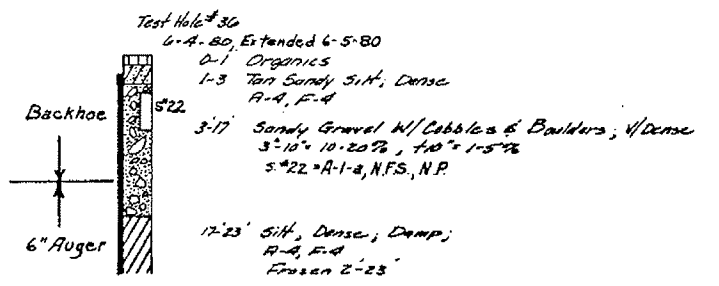 Test Hole #36
6-4-80, Extended 6-5-80
0-1' Organics
1-3 Tan Sandy Silt, Dense
A-4, F-4
Backhoe
S#22
3'-17' Sandy Gravel W/Cobbles & Boulders; V/Dense
3"-10"= 10-20%, +10"= 1-5%
S.#22 = A-1-a, N.F.S., N.P.
6" Auger
17-23' Silt, Dense, Damp;
A-4, F-4
Frozen 2'-23'